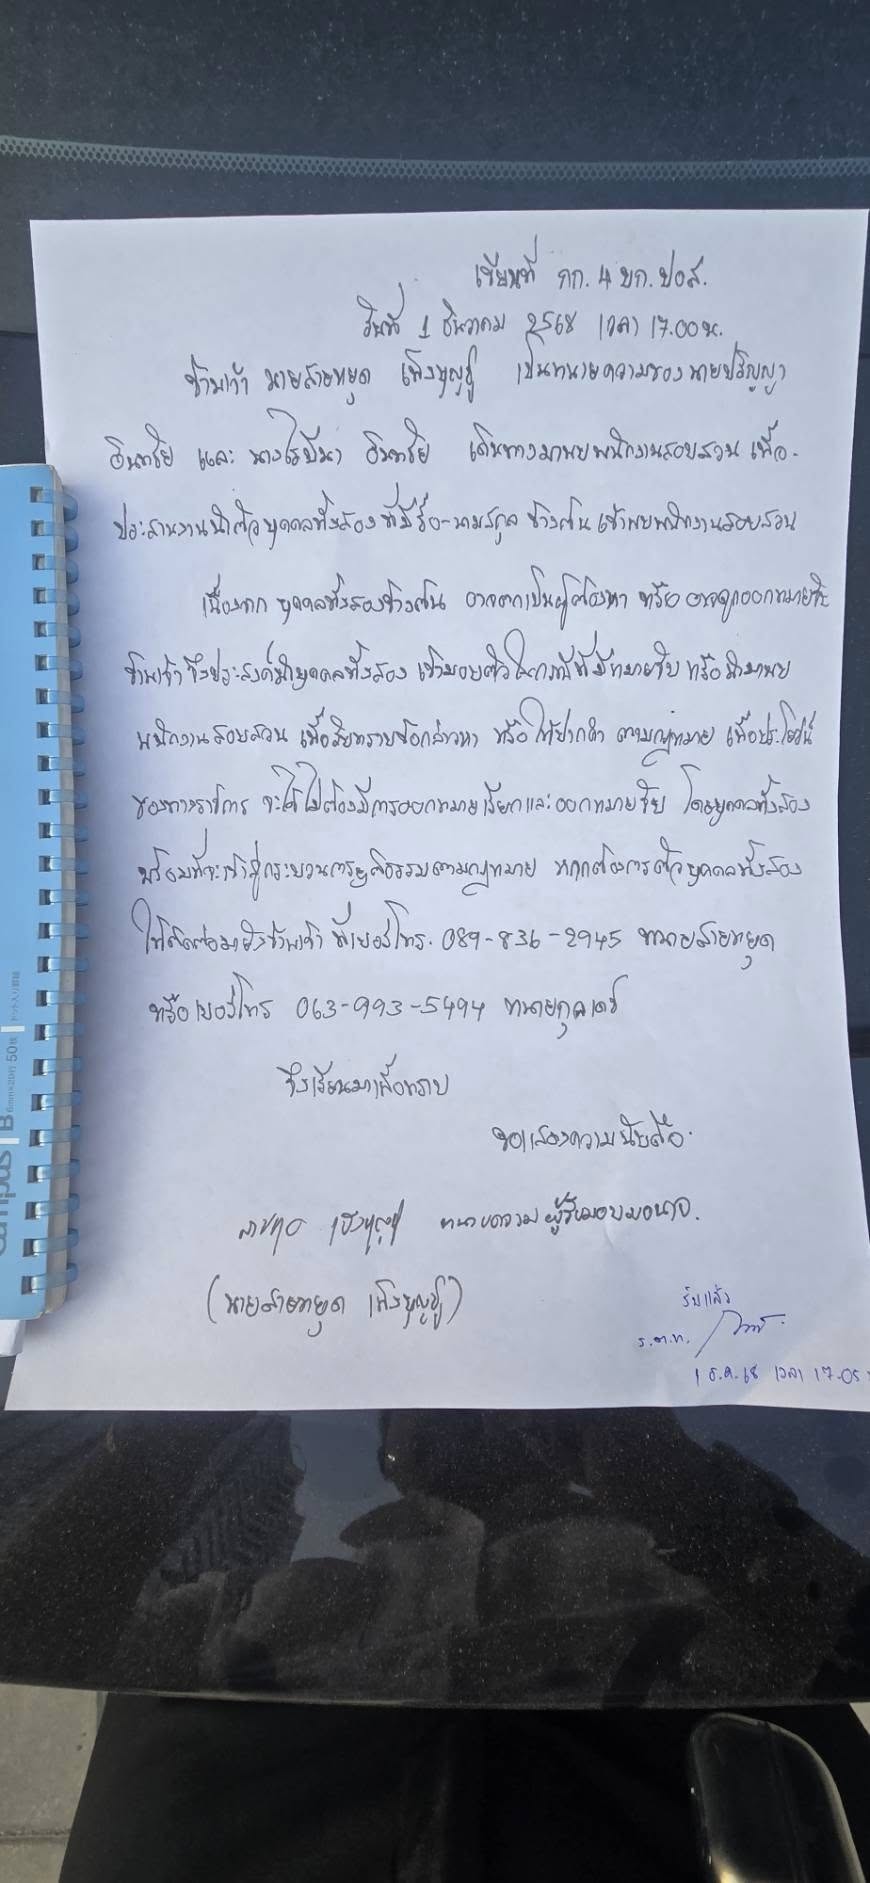 เขียนที่ กก. 4 บก. ปอศ.
วันที่ 1 ธันวาคม 2568 เวลา 17.00 น.
ข้าพเจ้า นายสายหยุด เพ็งบุญชู เป็นทนายความของ นายปริญญา
อินทรชัย และ นาง อินทรชัย เดินทางมาพบพนักงานสอบสวน เพื่อ
ประสานงานนำตัวบุคคลทั้งสอง ที่มีชื่อ-นามสกุล ข้างต้น เข้าพบพนักงานสอบสวน
เนื่องจาก บุคคลทั้งสองข้างต้น อาจตกเป็นผู้ต้องหา หรือ อาจถูกออกหมายจับ
ข้าพเจ้า จึงประสงค์นำบุคคลทั้งสอง เข้ามอบตัวในกรณีที่มีหมายจับ หรือนำมาพบ
พนักงานสอบสวน เพื่อรับทราบข้อกล่าวหา หรือ ให้ปากคำ ตามกฎหมาย เพื่อประโยชน์
ของทางราชการ จะได้ไม่ต้องมีการออกหมายเรียกและออกหมายจับ โดยบุคคลทั้งสอง
พร้อมที่จะเข้าสู่กระบวนการยุติธรรมตามกฎหมาย หากต้องการตัวบุคคลทั้งสอง
ให้ติดต่อมายังข้าพเจ้า ที่เบอร์โทร. 089-836-2945 ทนายสายหยุด
หรือเบอร์โทร 063-993-5494 ทนายกุลเดช
จึงเรียนมาเพื่อทราบ
ขอแสดงความนับถือ
สายหยุด เพ็งบุญชู ทนายความผู้รับมอบอำนาจ.
(นายสายหยุด เพ็งบุญชู)
รับแล้ว
ร.ต.ท.
1 ธ.ค. 68 เวลา 17.05
Campus
B 6mm×29行 50枚 ドット入り罫線